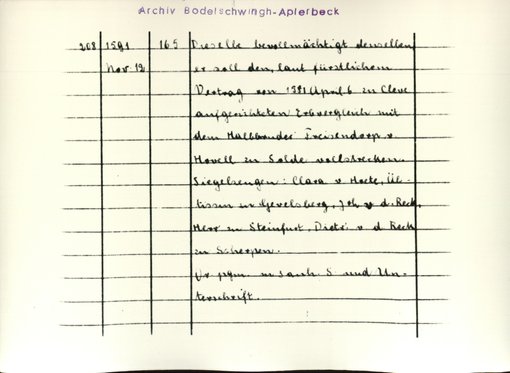 Archiv Bodelschwingh-Aplerbeck
208 1591 165 Dieselbe bevollmächtigt denselben,
Nov. 12 er soll den, laut fürstlichem
Vertrag von 1591 April 6 zu Cleve
aufgerichteten Erbvergleich mit
dem Halbbruder Freisendorp v.
Hovell zu Solde vollstrecken.
Siegelzeugen: Clara v. Hoete, Äb-
tissin zu Gevelsberg, Joh v. d. Reck,
Herr zu Steinfurt, Dietr. v. d. Reck
zu Scherpen.
Or. pgm. m. S. und Un-
terschrift.